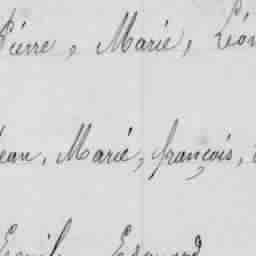 Pierre, Marie, Léon
Jean, Marie, françois,
Emile Edouard